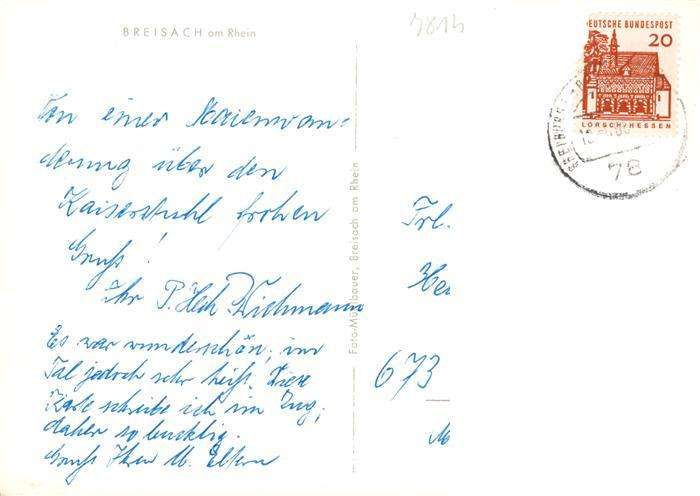 BREISACH am Rhein
7814
DEUTSCHE BUNDESPOST
20
LORSCH/HESSEN
78
Von einer Maienwan-
derung über den
Kaiserstuhl frohen
Gruß!
Ihr P. Wichmann
Es war wunderschön, im
Tal jedoch sehr heiß. Diese
Karte schreibe ich im Zug,
daher so bucklig.
Gruß Ihren Eltern
Foto-Mühlbauer, Breisach am Rhein
Frl.
673